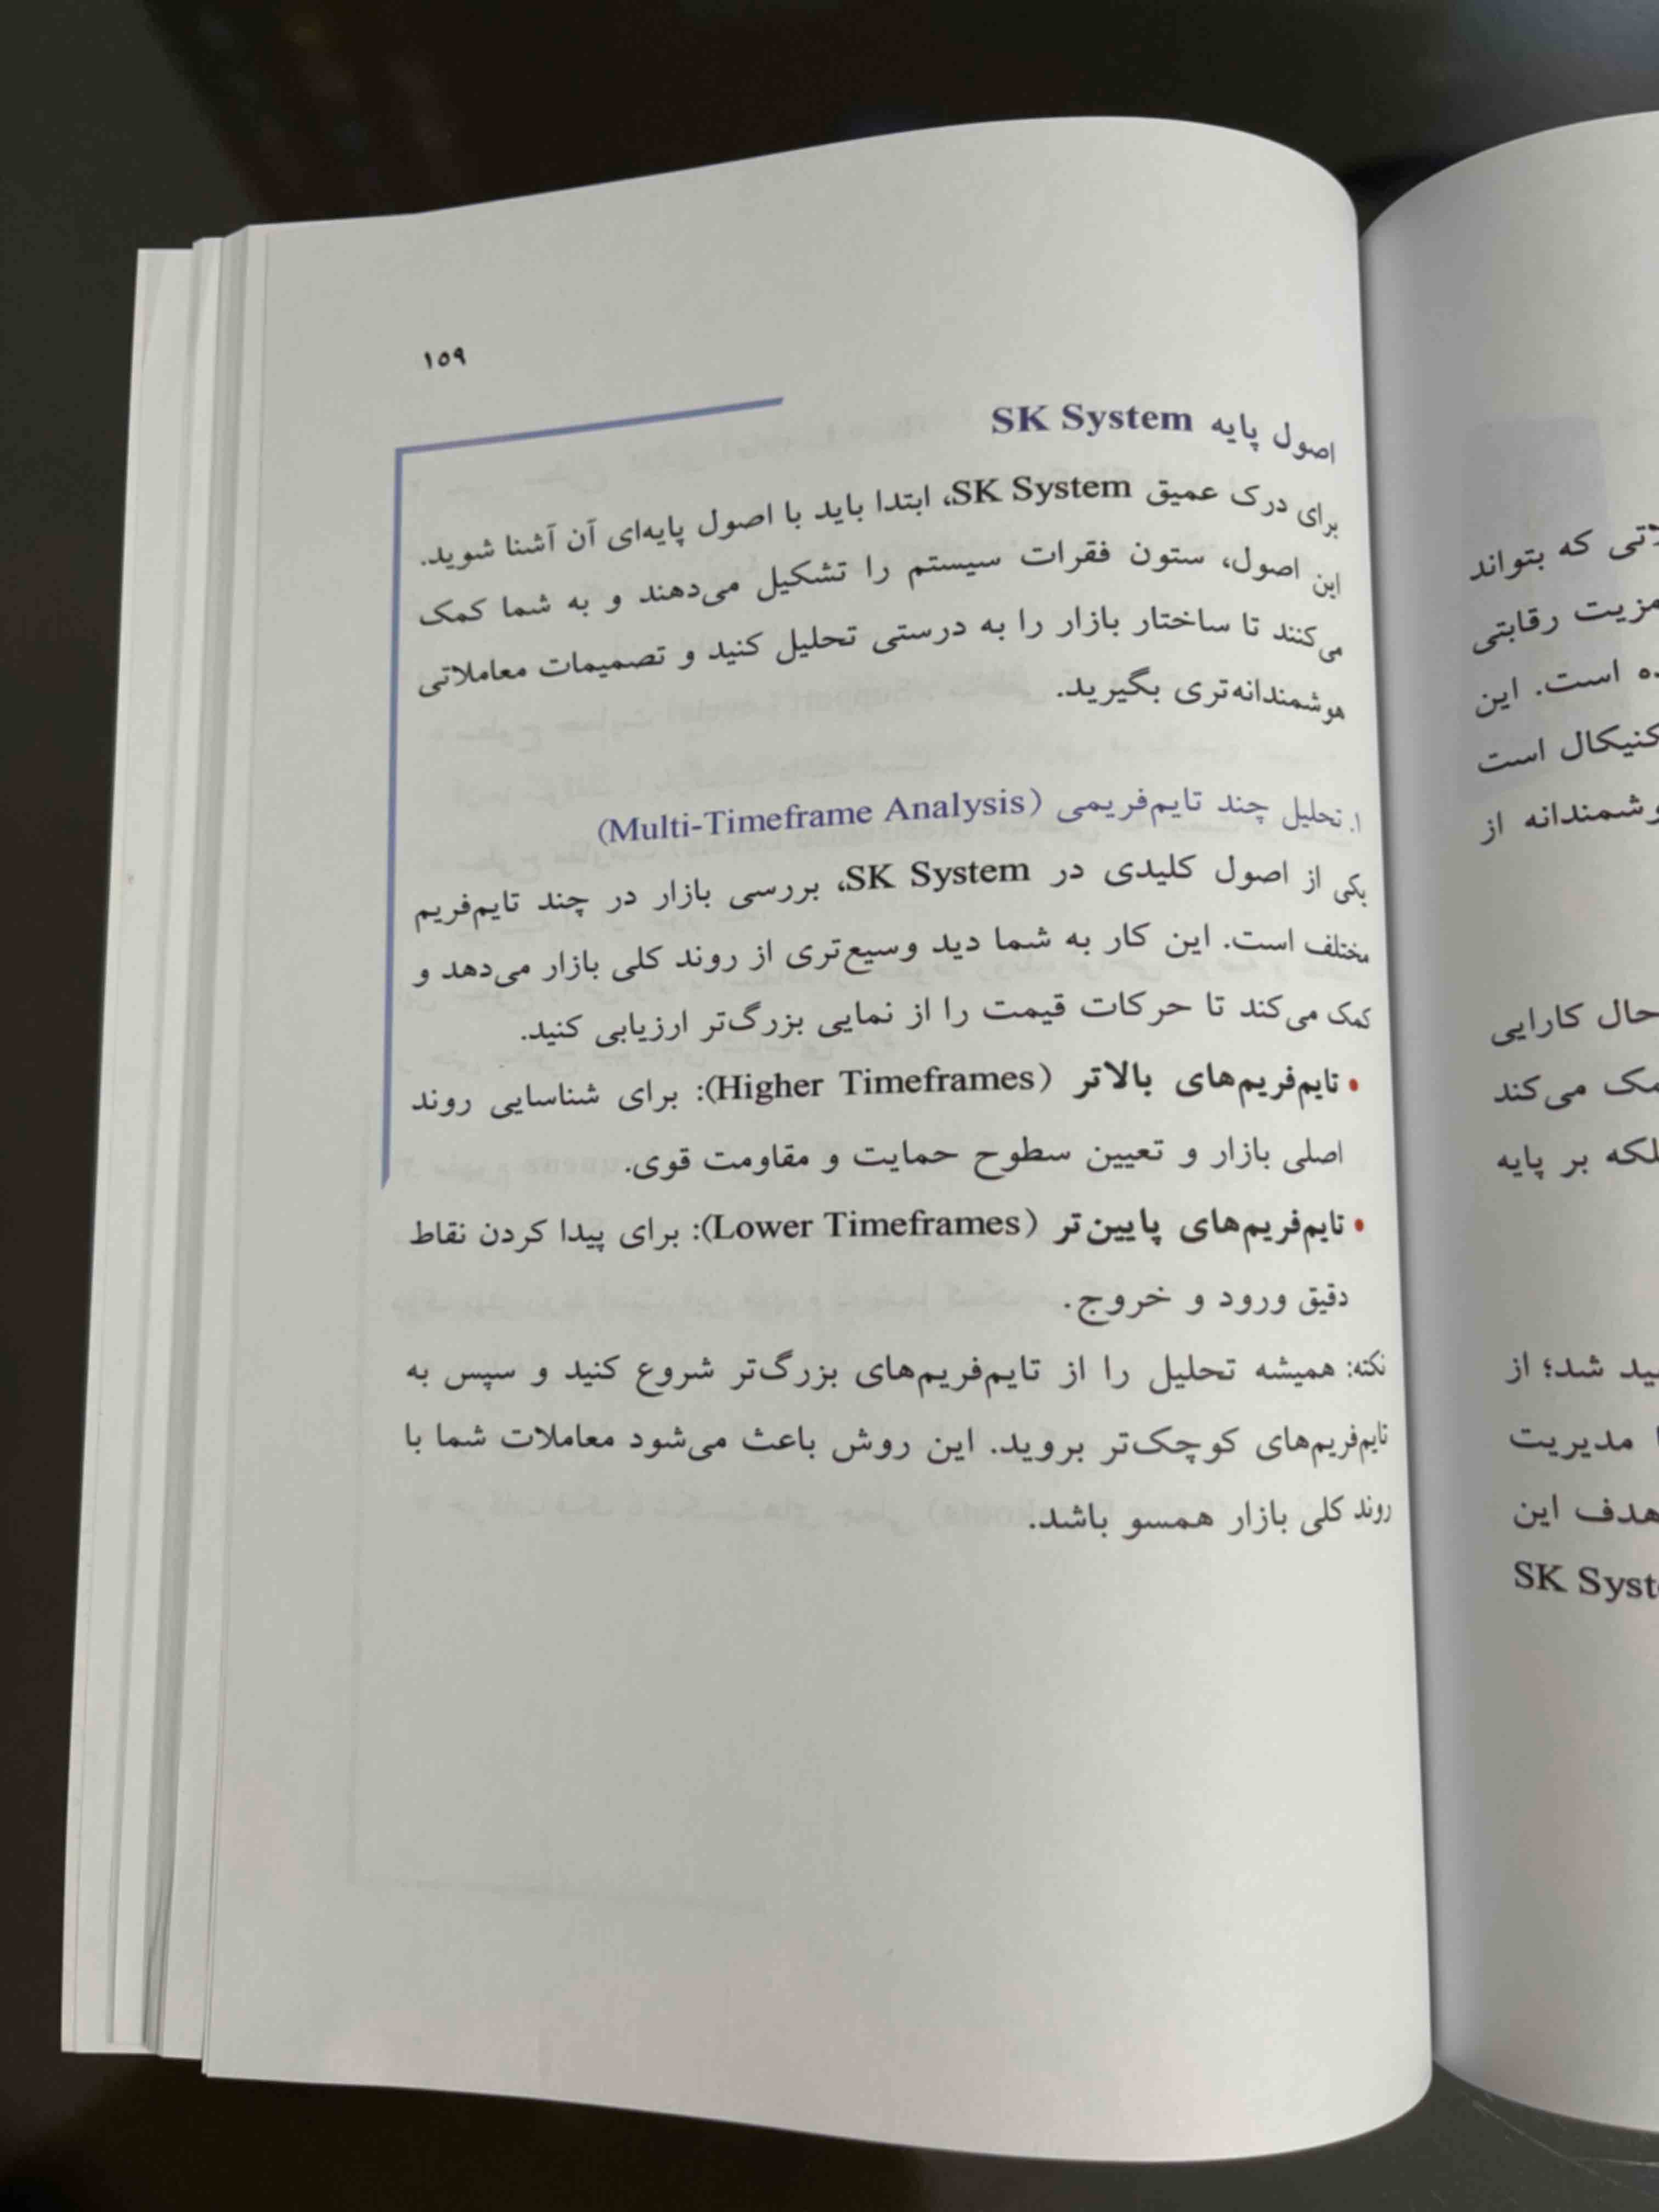 ۱۵۹
اصول پایه SK System
برای درک عمیق SK System، ابتدا باید با اصول پایه‌ای آن آشنا شوید.
این اصول، ستون فقرات سیستم را تشکیل می‌دهند و به شما کمک
می‌کنند تا ساختار بازار را به درستی تحلیل کنید و تصمیمات معاملاتی
هوشمندانه‌تری بگیرید.
۱. تحلیل چند تایم‌فریمی (Multi-Timeframe Analysis)
یکی از اصول کلیدی در SK System، بررسی بازار در چند تایم‌فریم
مختلف است. این کار به شما دید وسیع‌تری از روند کلی بازار می‌دهد و
کمک می‌کند تا حرکات قیمت را از نمایی بزرگ‌تر ارزیابی کنید.
• تایم‌فریم‌های بالاتر (Higher Timeframes): برای شناسایی روند
اصلی بازار و تعیین سطوح حمایت و مقاومت قوی.
• تایم‌فریم‌های پایین‌تر (Lower Timeframes): برای پیدا کردن نقاط
دقیق ورود و خروج.
نکته: همیشه تحلیل را از تایم‌فریم‌های بزرگ‌تر شروع کنید و سپس به
تایم‌فریم‌های کوچک‌تر بروید. این روش باعث می‌شود معاملات شما با
روند کلی بازار همسو باشد.
که بتواند
مزیت رقابتی
است. این
است
از
حال کارایی
می‌کند
بر پایه
شد؛ از
مدیریت
هدف این
SK